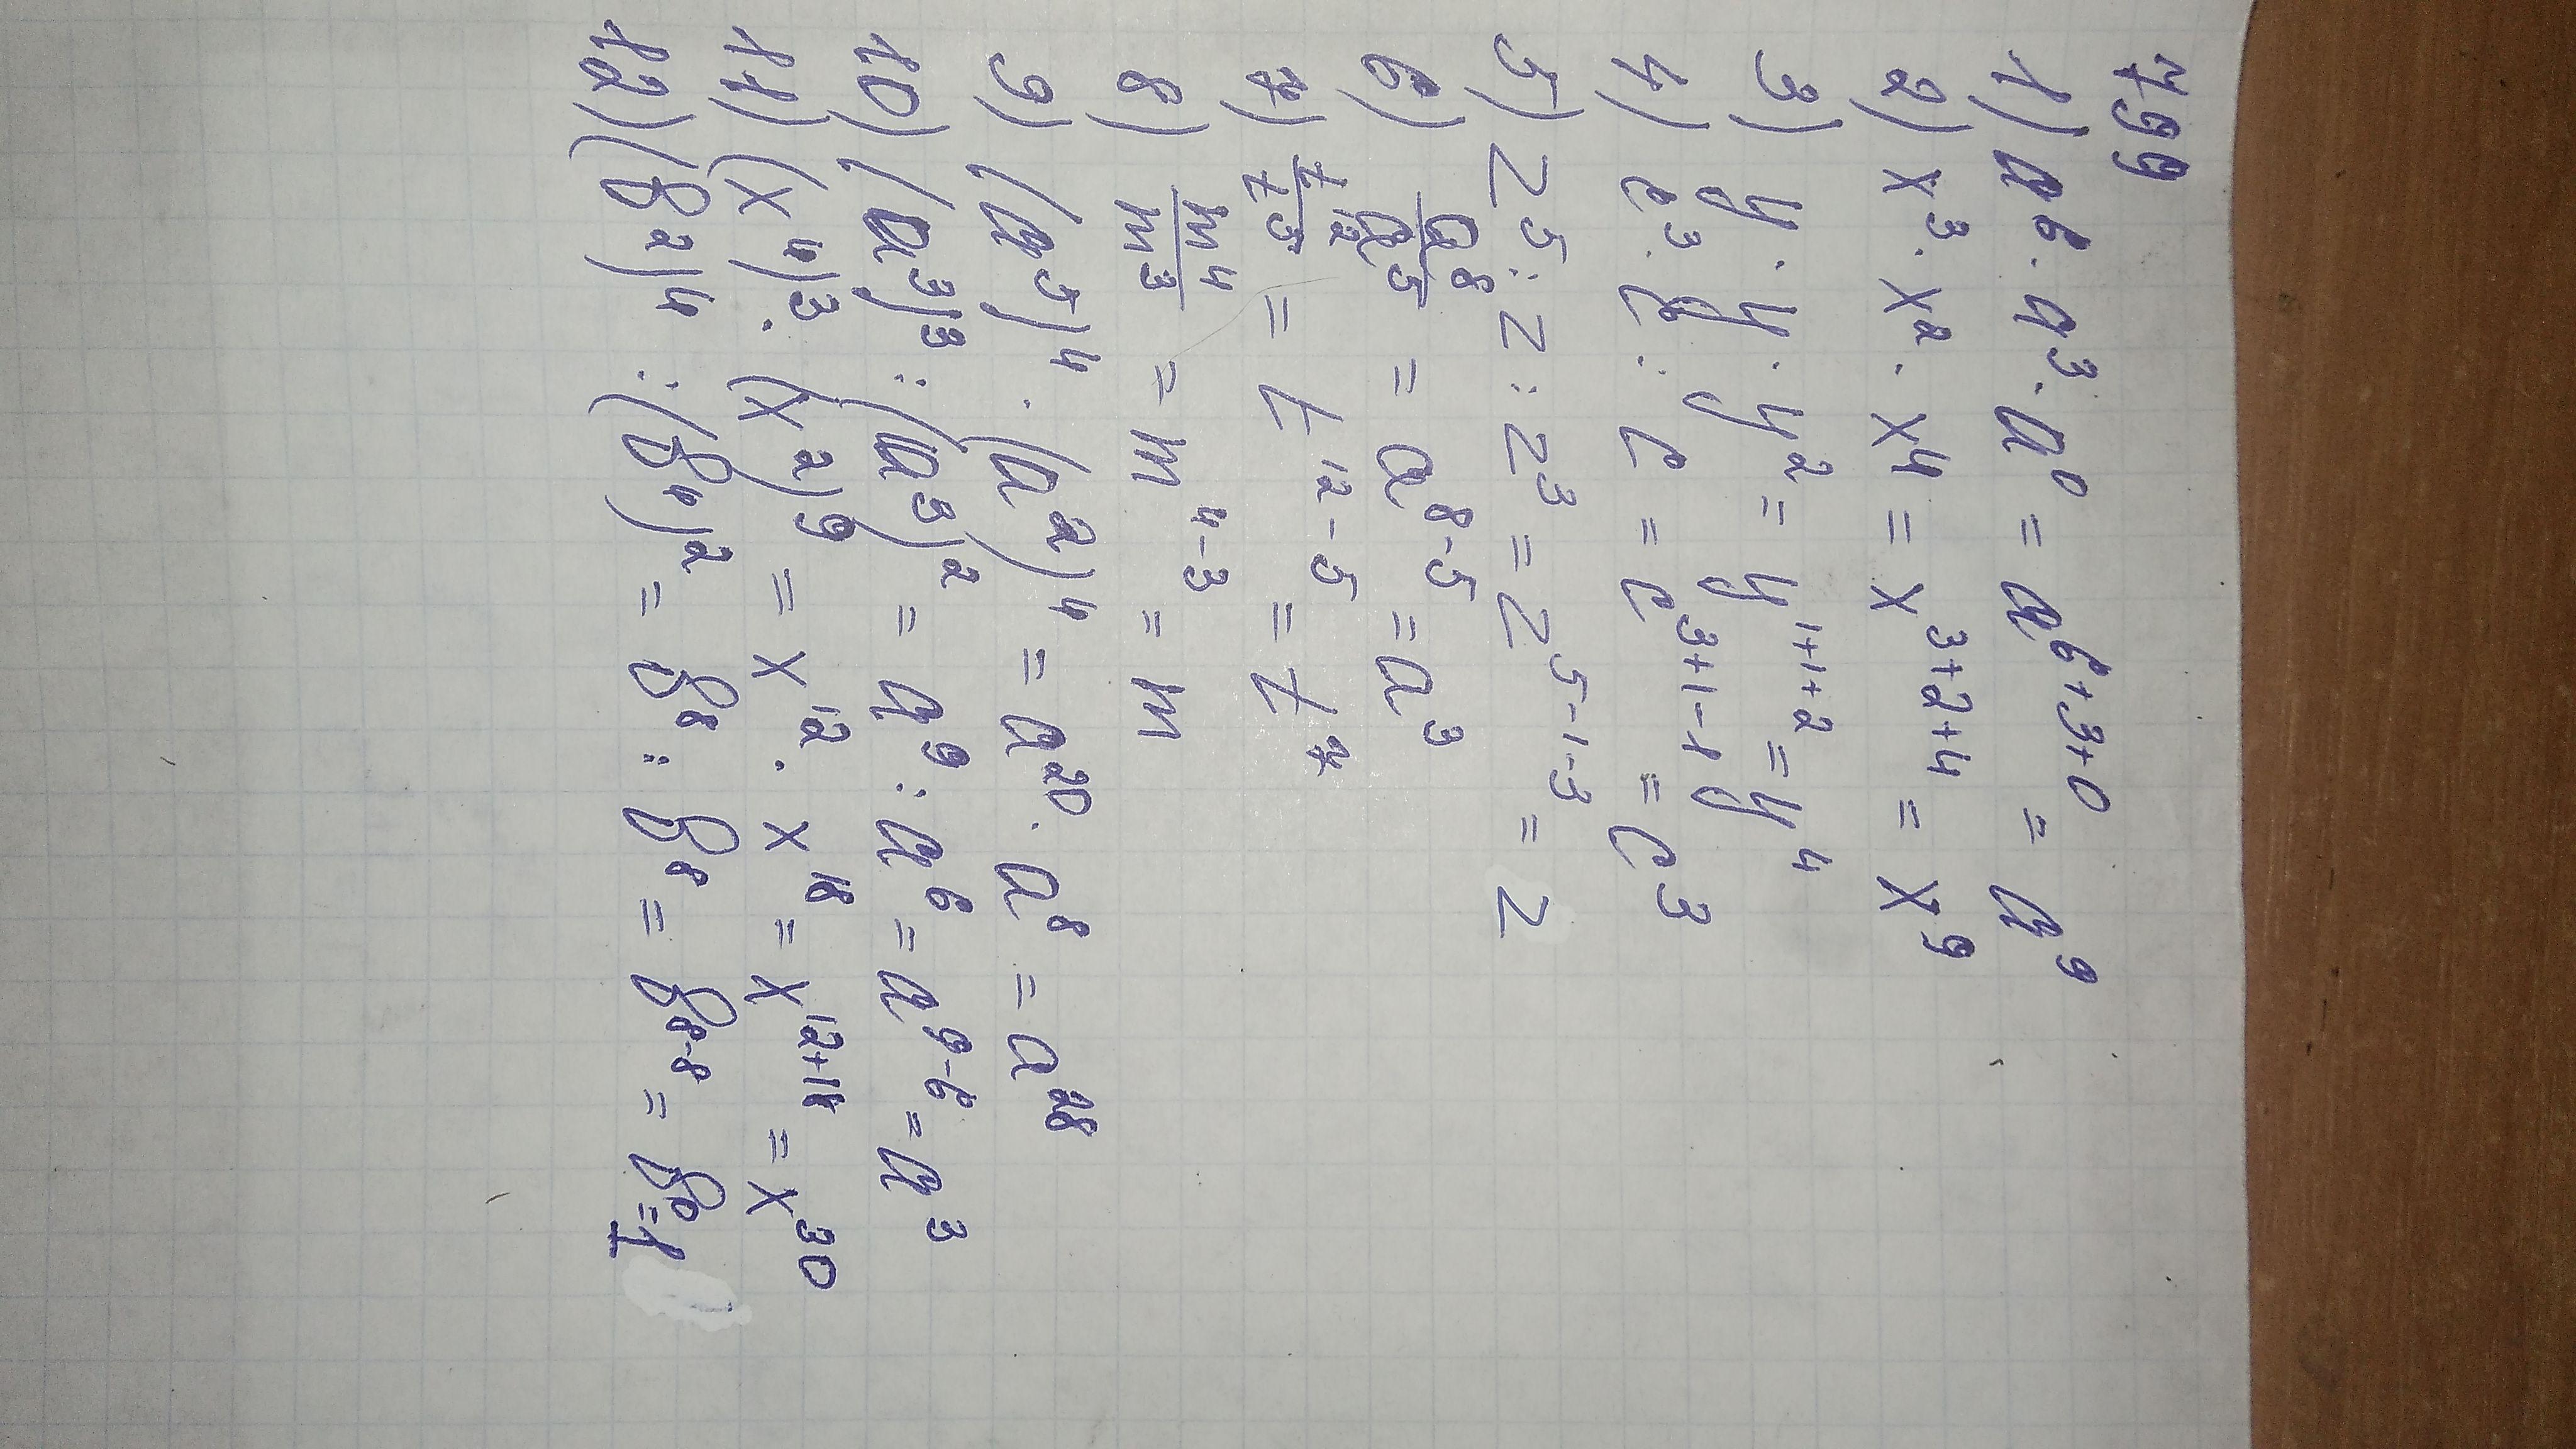 799
1) a⁶ · a³ · a⁰ = a⁶⁺³⁺⁰ = a⁹
2) x³ · x² · x⁴ = x³⁺²⁺⁴ = x⁹
3) y · y · y² = y¹⁺¹⁺² = y⁴
4) c³ · c : c = c³⁺¹⁻¹ = c³
5) z⁵ : z : z³ = z⁵⁻¹⁻³ = z
6) a⁸/a⁵ = a⁸⁻⁵ = a³
7) t¹²/t⁵ = t¹²⁻⁵ = t⁷
8) m⁴/m³ = m⁴⁻³ = m
9) (a⁵)⁴ · (a²)⁴ = a²⁰ · a⁸ = a²⁸
10) (a³)³ : (a³)² = a⁹ : a⁶ = a⁹⁻⁶ = a³
11) (x⁴)³ · (x²)⁹ = x¹² · x¹⁸ = x¹²⁺¹⁸ = x³⁰
12) (в²)⁴ : (в⁴)² = в⁸ : в⁸ = в⁸⁻⁸ = в⁰ = 1